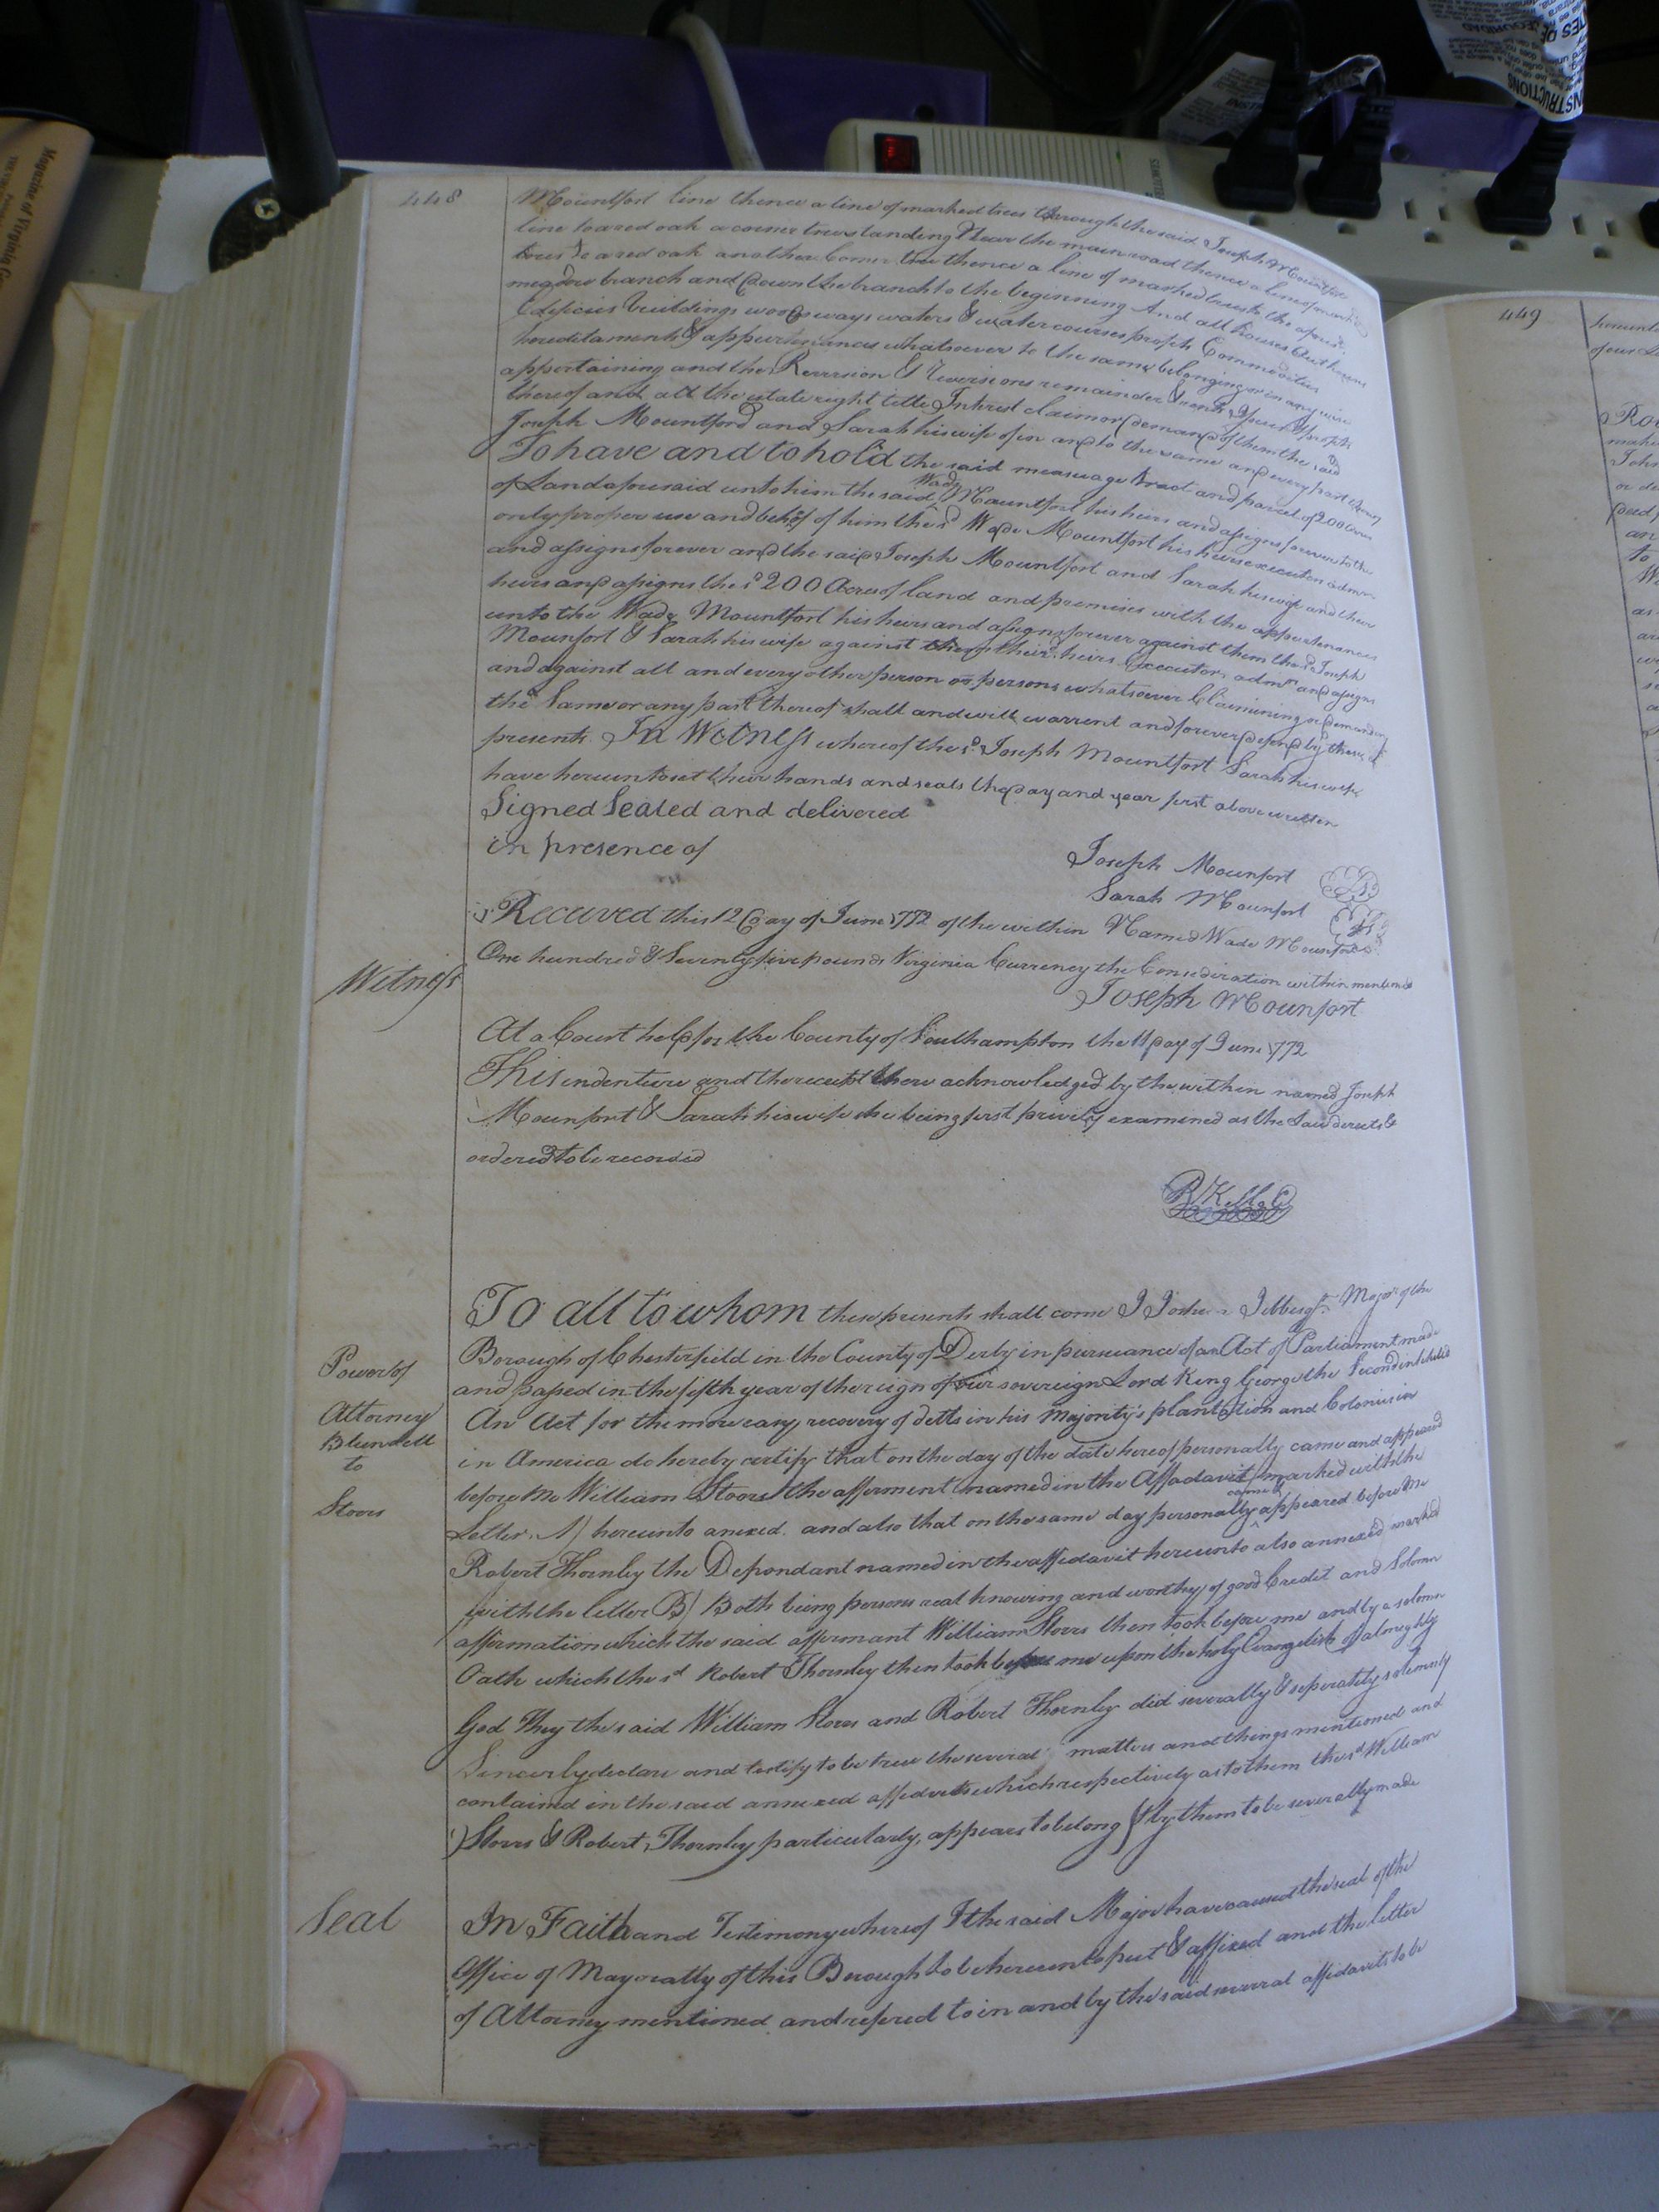 448
Mountfort line thence a line of marked trees through the said Joseph Mountfort
line to a red oak a corner tree standing Near the main road thence a line of marked
trees to a red oak another Corner tree thence a line of marked trees to the afores.d
meadow branch and down the branch to the beginning And all houses Outhouses
Edificies buildings woods ways waters & water courses profits Commodities
hereditaments & appurtenances whatsoever to the same belonging or in any wise
appertaining and the Reversion & Reversions remainder & rents Issues & profits
thereof and all the estate right title Intrest claim or demand of them the said
Joseph Mountford and Sarah his wife of in and to the same and every part thereof
To have and to hold the said messuage tract and parcel of 200 acres
of Land aforesaid unto him the said Wade Mountfort his heirs and assigns forever to the
only proper use and behof of him the s.d Wade Mountfort his heirs executors admrs
and assigns forever and the said Joseph Mountfort and Sarah his wife and their
heirs and assigns the s.d 200 Acres of land and premises with the appurtenances
unto the Wade Mountfort his heirs and assigns forever against them the s.d Joseph
Mounfort & Sarah his wife against their heirs Executors admrs and assigns
and against all and every other person or persons whatsoever Claimining or demanding
the Same or any part thereof shall and will warrent and forever defend by these
presents. In Witness whereof the s.d Joseph Mountfort Sarah his wife
have hereunto set their hands and seals the day and year first above written
Signed Sealed and delivered
in presence of
Joseph Mounfort
Sarah Mounfort
Received this 12 Day of June 1772 of the within Named Wade Mounfort
One hundred & Seventy five pounds Virginia Currency the Consideration within mentioned
Witness
Joseph Mounfort
At a Court held for the County of Southampton the 11 day of June 1772
This indenture and the receipt there acknowledged by the within named Joseph
Mounfort & Sarah his wife she being first privily examined as the Law directs &
ordered to be recorded
To all to whom these presents shall come I Major of the
Power of
Attorney
Blundell
to
Stoors
Borough of Chesterfield in the County of Derby in pursuance of an Act of Parliament made
and passed in the fifth year of the reign of our sovereign Lord King George the Second intitled
An Act for the more easy recovery of detts in his Majority's plantation and Colonies in
in America do hereby certify that on the day of the date hereof personally came and appeared
before me William Stoors the afferment (named in the Affadavit marked with the
Letter A) hereunto anexed. and also that on the same day personally came & appeared before Me
Robert Thornley the Depondant named in the affidavit hereunto also annexed marked
with the letter B) Both being persons well knowing and worthy of good Credit and Solomn
affirmation which the said affermant William Storrs then took before me and by a solomn
Oath which the sd Robert Thornley then took before me upon the holy Evangelists of almighty
God They the said William Storrs and Robert Thornley did severally & seperately solemnly
Sincerly declare and testify to be true the several matters and things mentioned and
contained in the said annexed affidvits which respectively as to them the sd William
Storrs & Robert Thornley particularly, appears to belong & by them to be severally made
Seal
In Faith and Testimony whereof I the said Major have caused the seal of the
Office of Mayoralty of this Borough to be hereunto put & affixed and the letter
of Attorney mentioned and refered to in and by the said several affidavits to be
449
Magazine of Virginia
INSTRUCTIONS